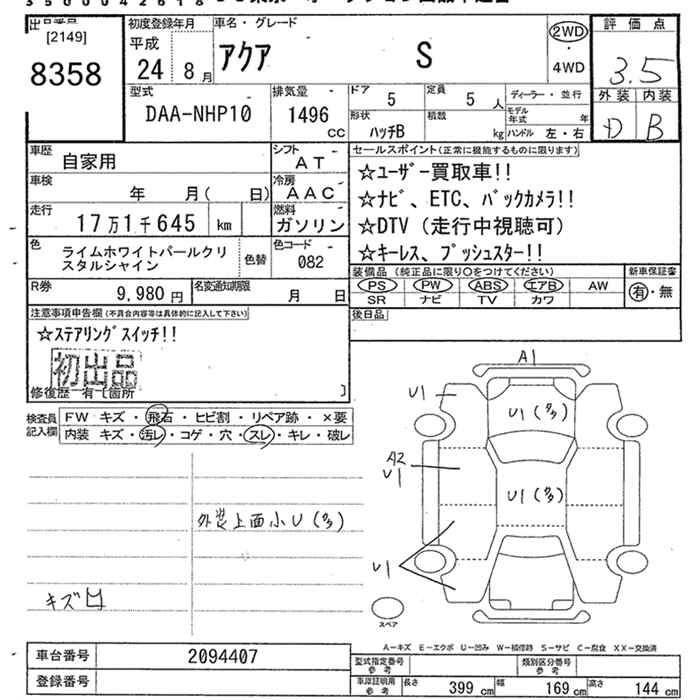 3500042618
出品番号
[2149]
8358
初度登録年月
平成
24 8月
車名・グレード
アクア S
2WD
・
4WD
評価点
3.5
外装 内装
D B
型式
DAA-NHP10
排気量
1496
CC
ドア
5
定員
5 人
形状
ハッチB
積載
kg
ディーラー・並行
モデル
年式 年
ハンドル 左・右
車歴
自家用
シフト
AT
車検
年 月( 日)
冷房
AAC
走行
17万1千645 km
燃料
ガソリン
色
ライムホワイトパールクリ
スタルシャイン
色替
色コード
082
R券
9,980 円
名変通知期限
月 日
セールスポイント(正常に機能するものに限ります)
☆ユーザー買取車!!
☆ナビ、ETC、バックカメラ!!
☆DTV(走行中視聴可)
☆キーレス、プッシュスター!!
装備品 (純正品に限り○をつけてください)
PS PW ABS エアB AW
SR ナビ TV カワ
新車保証書
有・無
後日品
注意事項申告欄(不具合内容等は具体的に記入して下さい)
☆ステアリングスイッチ!!
初出品
修復歴 有〔箇所 〕
検査員
記入欄
FW キズ・飛石・ヒビ割・リペア跡・×要
内装 キズ・汚レ・コゲ・穴・スレ・キレ・破レ
外装上面小U(多)
キズ凹
A1
U1
U1(多)
A2
U1
U1(多)
U1
スペア
A－キズ E－エクボ U－凹み W－補修跡 S－サビ C－腐食 XX－交換済
車台番号 2094407
登録番号
型式指定番号
参考
類別区分番号
参考
車庫証明用
参考
長さ 399 cm 幅 169 cm 高さ 144 cm